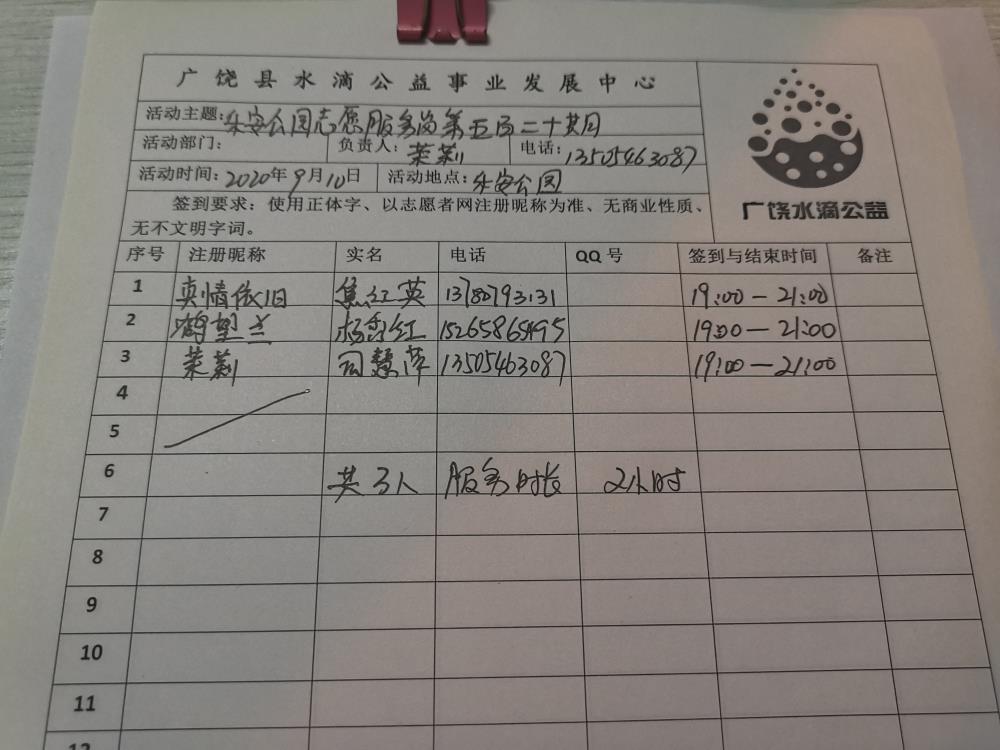 广饶县水滴公益事业发展中心
活动主题:乐安公园志愿服务岗第五百二十期
活动部门: 负责人:茉莉 电话:13505463087
活动时间:2020年9月10日 活动地点:乐安公园
签到要求:使用正体字、以志愿者网注册昵称为准、无商业性质、
无不文明字词。
广饶水滴公益
序号 注册昵称 实名 电话 QQ号 签到与结束时间 备注
1 真情依旧 焦红英 19:00—21:00
2 鹤望兰 杨秀红 19:00—21:00
3 茉莉 司慧萍 13505463087 19:00—21:00
4
5
6 共3人 服务时长 2小时
7
8
9
10
11
12